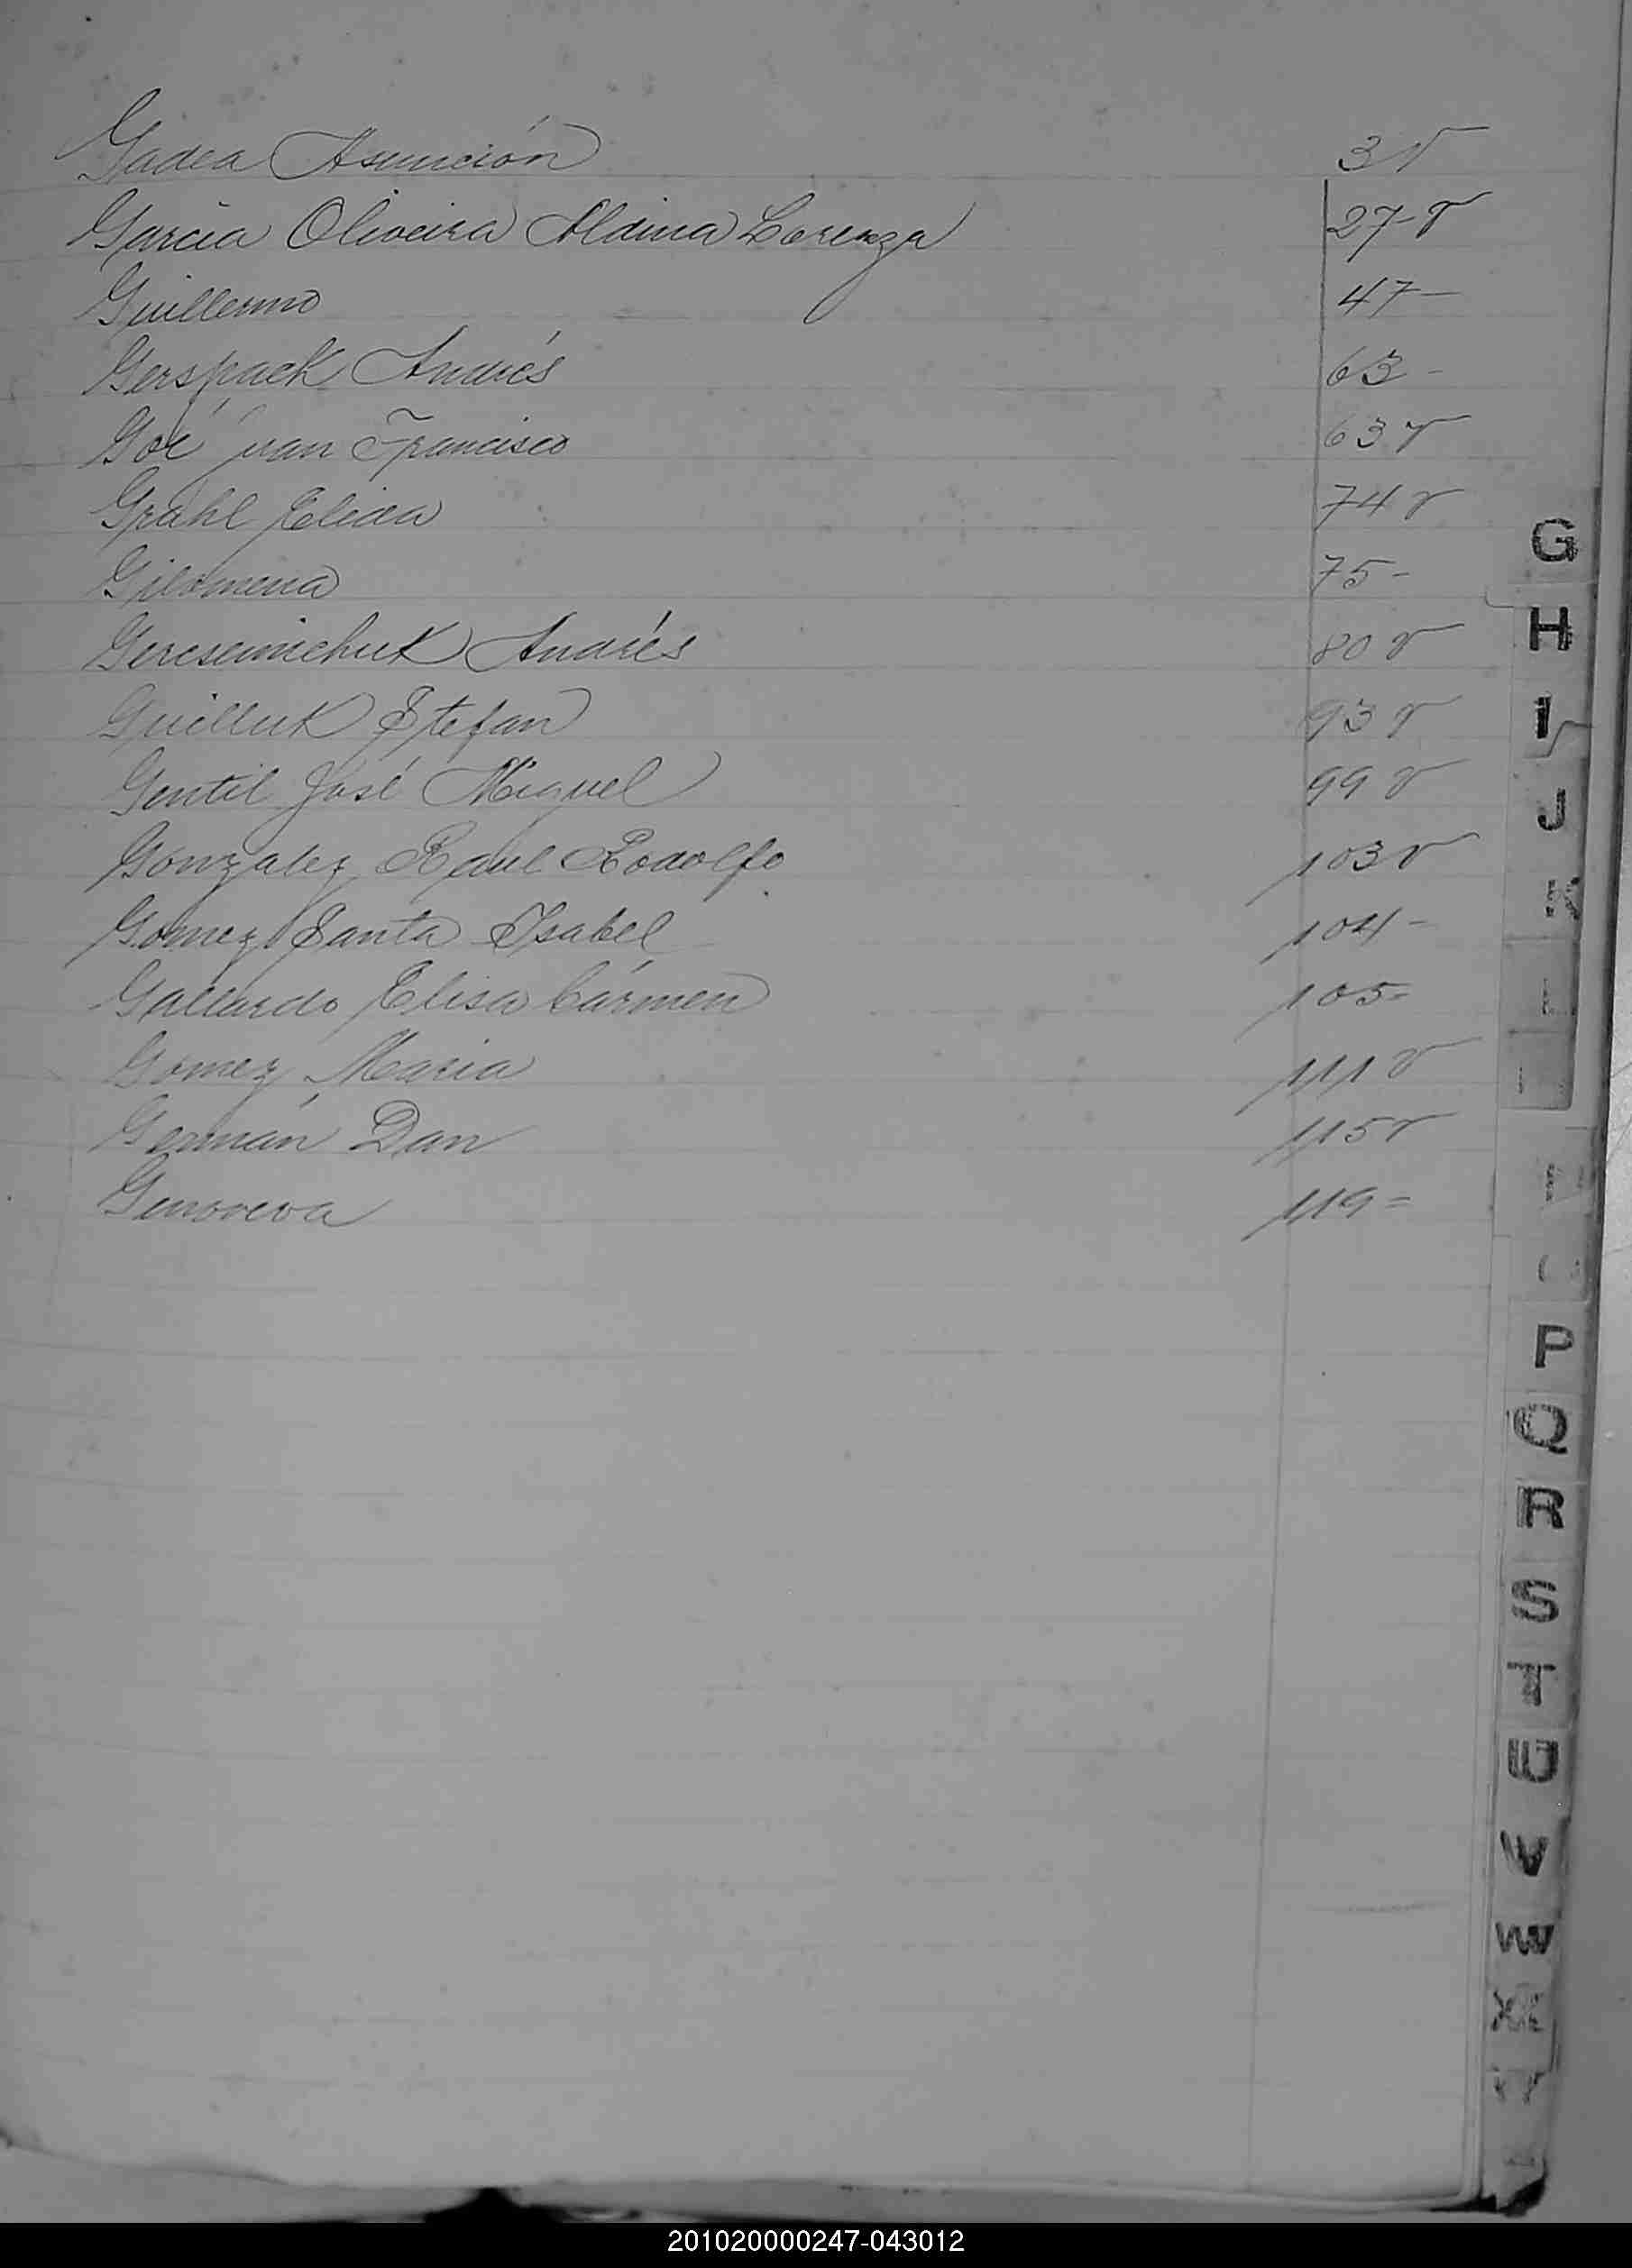 Gadea Asunción 3 v
Garcia Oliveira Aldina Lorenza 27-v
Guillermo 47-
Gerspack Andrés 63-
Goé Juan Francisco 63 v
Grahl Elida 74 v
Gilomena 75-
Andrés 80 v
Guilluk Stefan 93 v
Gentil José Miguel 99 v
Gonzalez Raul Rodolfo 103 v
Gomez Santa Isabel 104-
Gallardo Elisa Cármen 105-
Gomez Maria 111 v
Germán Dan 115 v
Genoveva 119-
G
H
I
J
K
L
P
Q
R
S
T
U
V
W
X
Y
201020000247-043012